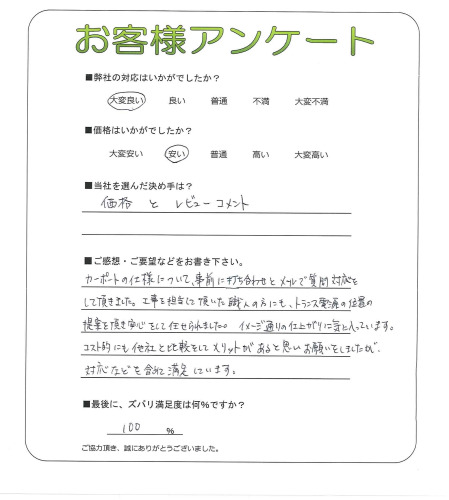 お客様アンケート
■弊社の対応はいかがでしたか？
大変良い 良い 普通 不満 大変不満
■価格はいかがでしたか？
大変安い 安い 普通 高い 大変高い
■当社を選んだ決め手は？
価格 と レビューコメント
■ご感想・ご要望などをお書き下さい。
カーポートの仕様について、事前に打ち合わせとメールで質問対応を
して頂きました。工事を担当して頂いた職人の方にも、トランス電源の位置の
提案を頂き安心をして任せられました。イメージ通りの仕上がりに気に入っています。
コスト的にも他社と比較をしてメリットがあると思いお願いをしましたが、
対応なども含めて満足しています。
■最後に、ズバリ満足度は何%ですか？
100 %
ご協力頂き、誠にありがとうございました。